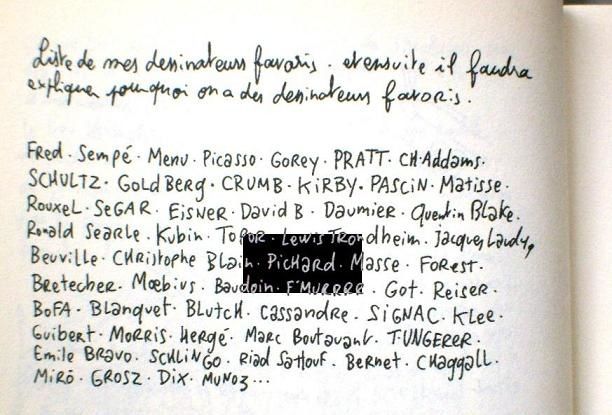 Liste de mes dessinateurs favoris. et ensuite il faudra
expliquer pourquoi on a des dessinateurs favoris.
Fred. Sempé. Menu. Picasso. Gorey. PRATT. CH.Addams.
SCHULTZ. GoldBerg. CRUMB. KiRBY. PASCiN. Matisse.
Rouxel. SeGAR. EiSNER. David B. Daumier. Quentin Blake.
Ronald Searle. Kubin. ToPOR. Lewis TRONdheim. Jacques
Beuville. CHRistophe Blain. PiCHARD. Masse. FORest.
Bretecher. Mœbius. Baudoin. F'MuRRRR. Got. Reiser.
BoFA. Blanquet. BLutcH. Cassandre. SiGNAC. Klee.
Guibert. MORRiS. Hergé. Marc Boutavant. T.UNGERER.
Emile BRavo. SCHLiNGO. Riad Sattouf. Bernet. CHaggall.
MiRó. GROSZ. Dix. MuNoz...